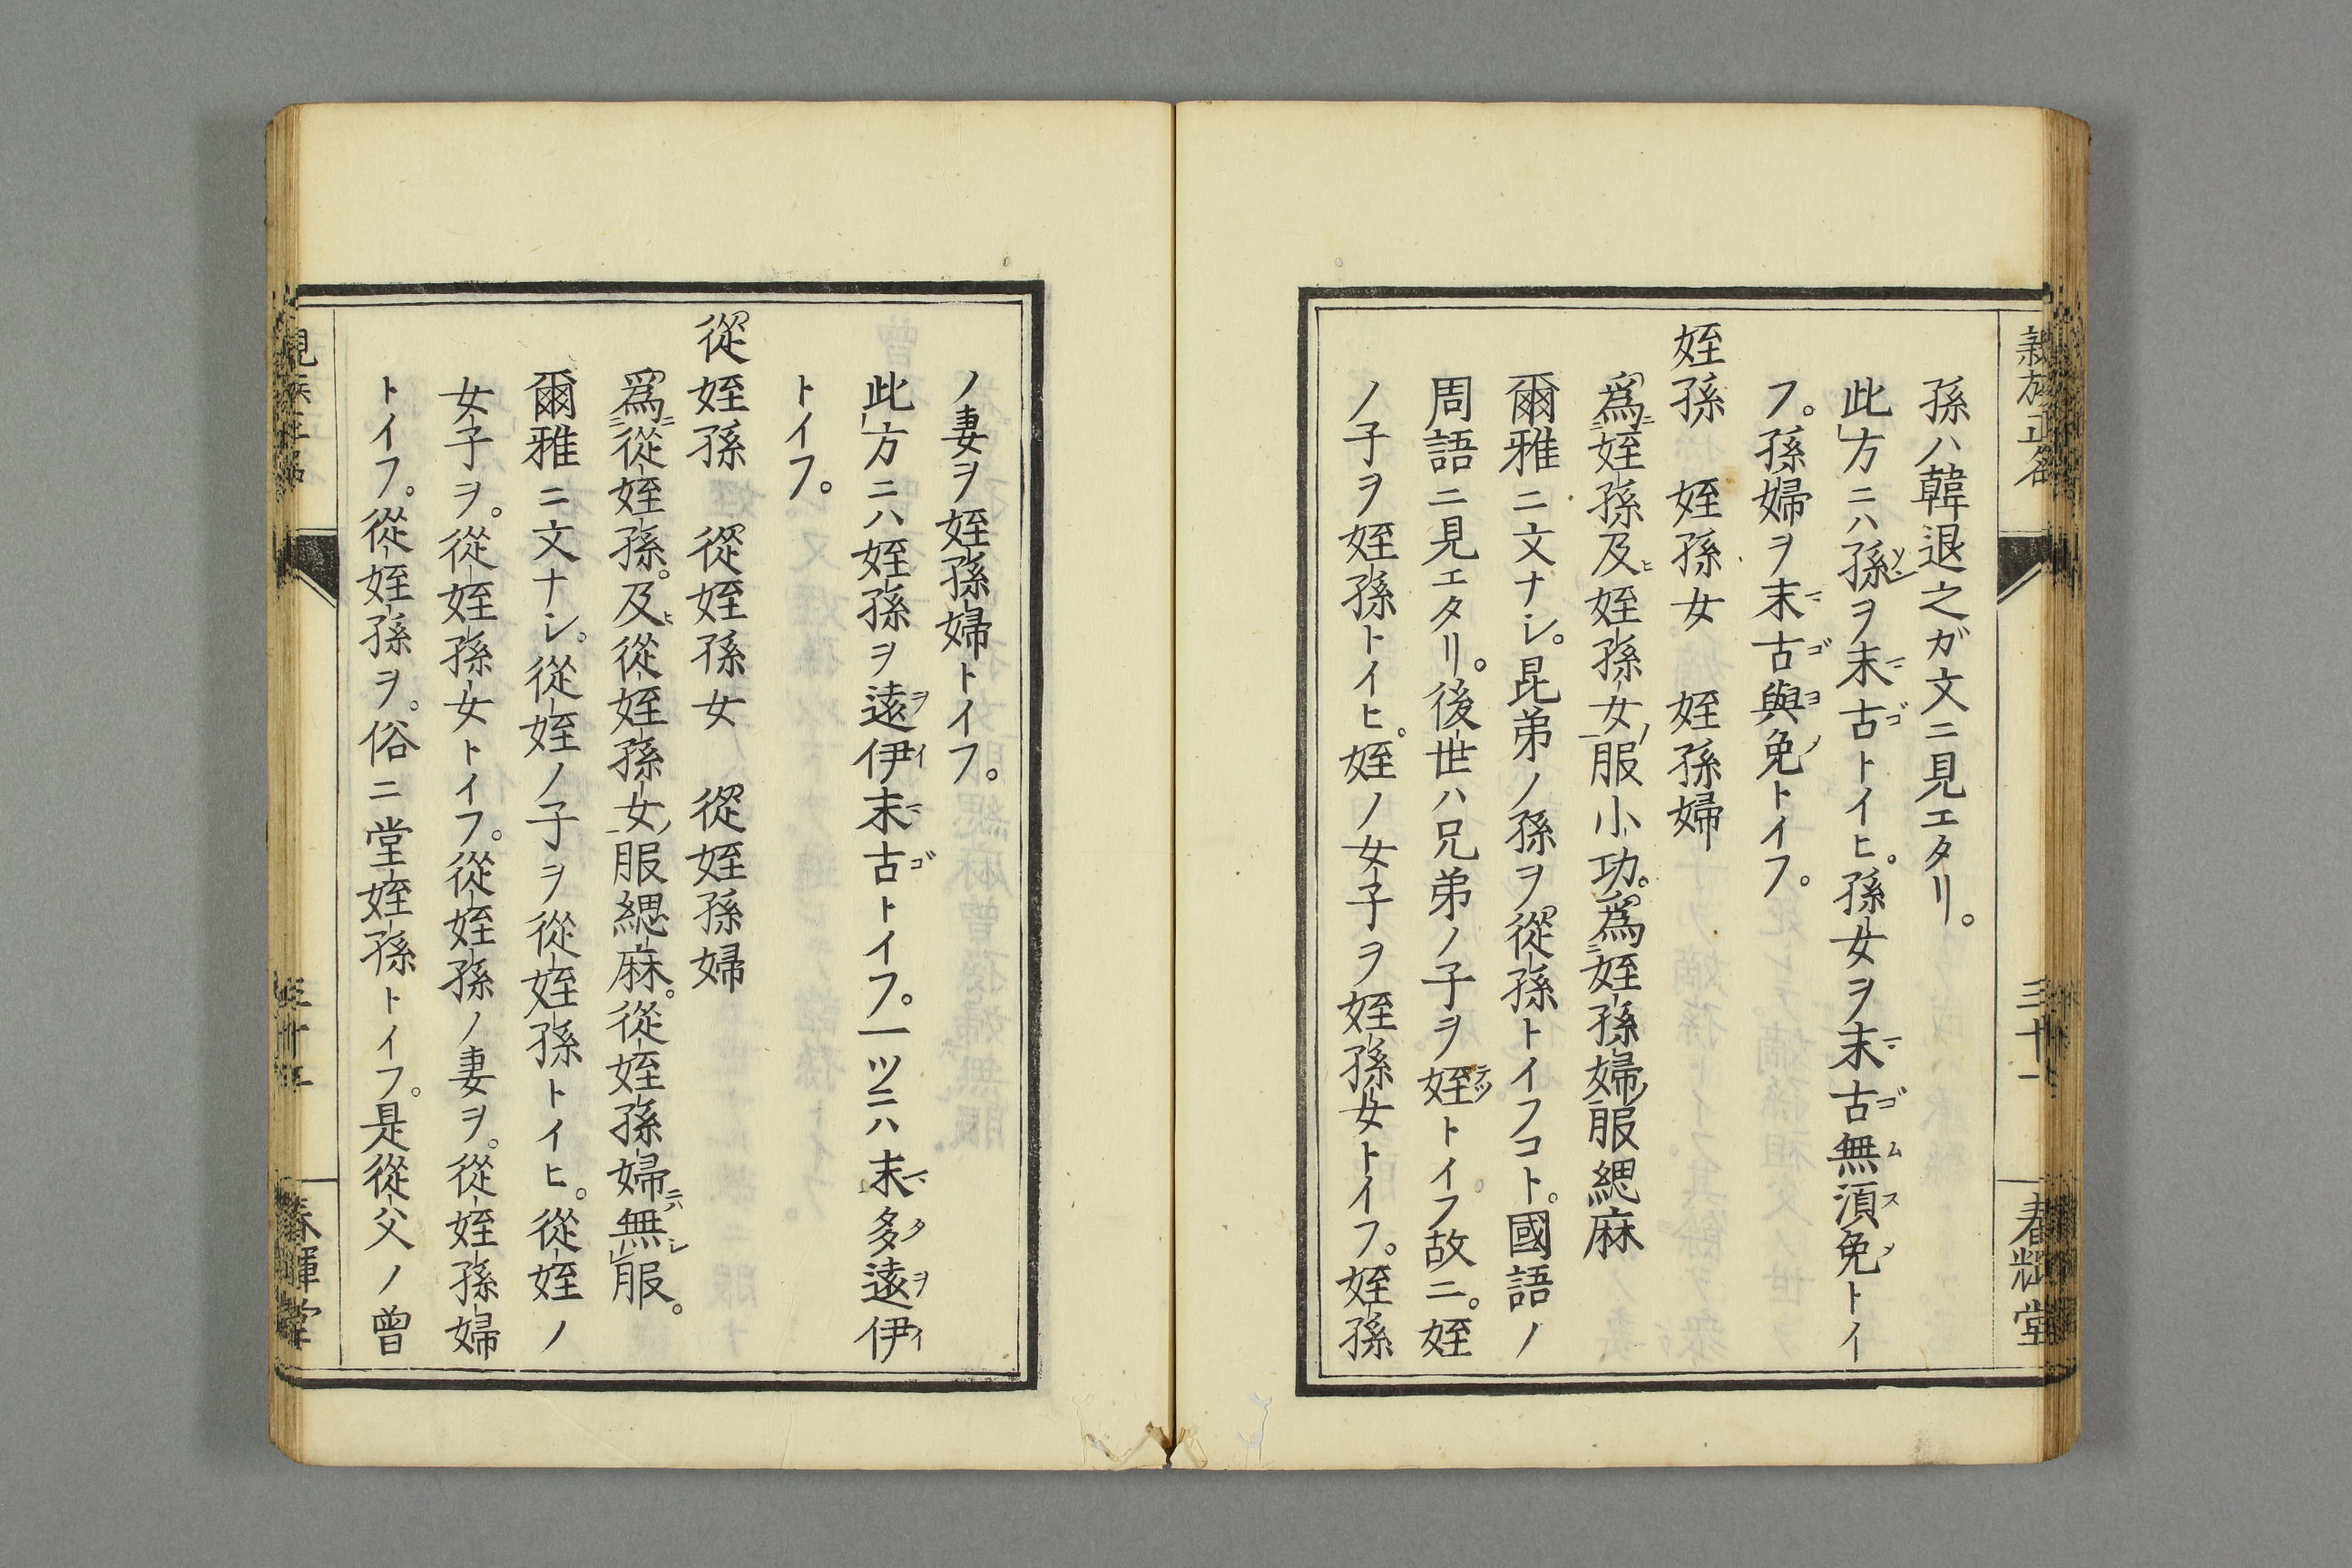 孫ハ韓退之ガ文ニ見エタリ。
此方ニハ孫ヲ末古トイヒ。孫女ヲ末古無湏免トイ
フ。孫婦ヲ末古與免トイフ。
姪孫　姪孫女　姪孫婦
爲姪孫及姪孫女服小功。爲姪孫婦服緦麻
爾雅ニ文ナシ。昆弟ノ孫ヲ從孫トイフコト。國語ノ
周語ニ見エタリ。後世ハ兄弟ノ子ヲ姪トイフ故ニ。姪
ノ子ヲ姪孫トイヒ。姪ノ女子ヲ姪孫女トイフ。姪孫
三十一
春輝堂
ノ妻ヲ姪孫婦トイフ。
此方ニハ姪孫ヲ遠伊末古トイフ。一ツニハ末多遠伊
トイフ。
從姪孫　從姪孫女　從姪孫婦
爲從姪孫。及從姪孫女服緦麻。從姪孫婦無服。
爾雅ニ文ナシ。從姪ノ子ヲ從姪孫トイヒ。從姪ノ
女子ヲ。從姪孫女トイフ。從姪孫ノ妻ヲ。從姪孫婦
トイフ。從姪孫ヲ。俗ニ堂姪孫トイフ。是從父ノ曾
春暉堂